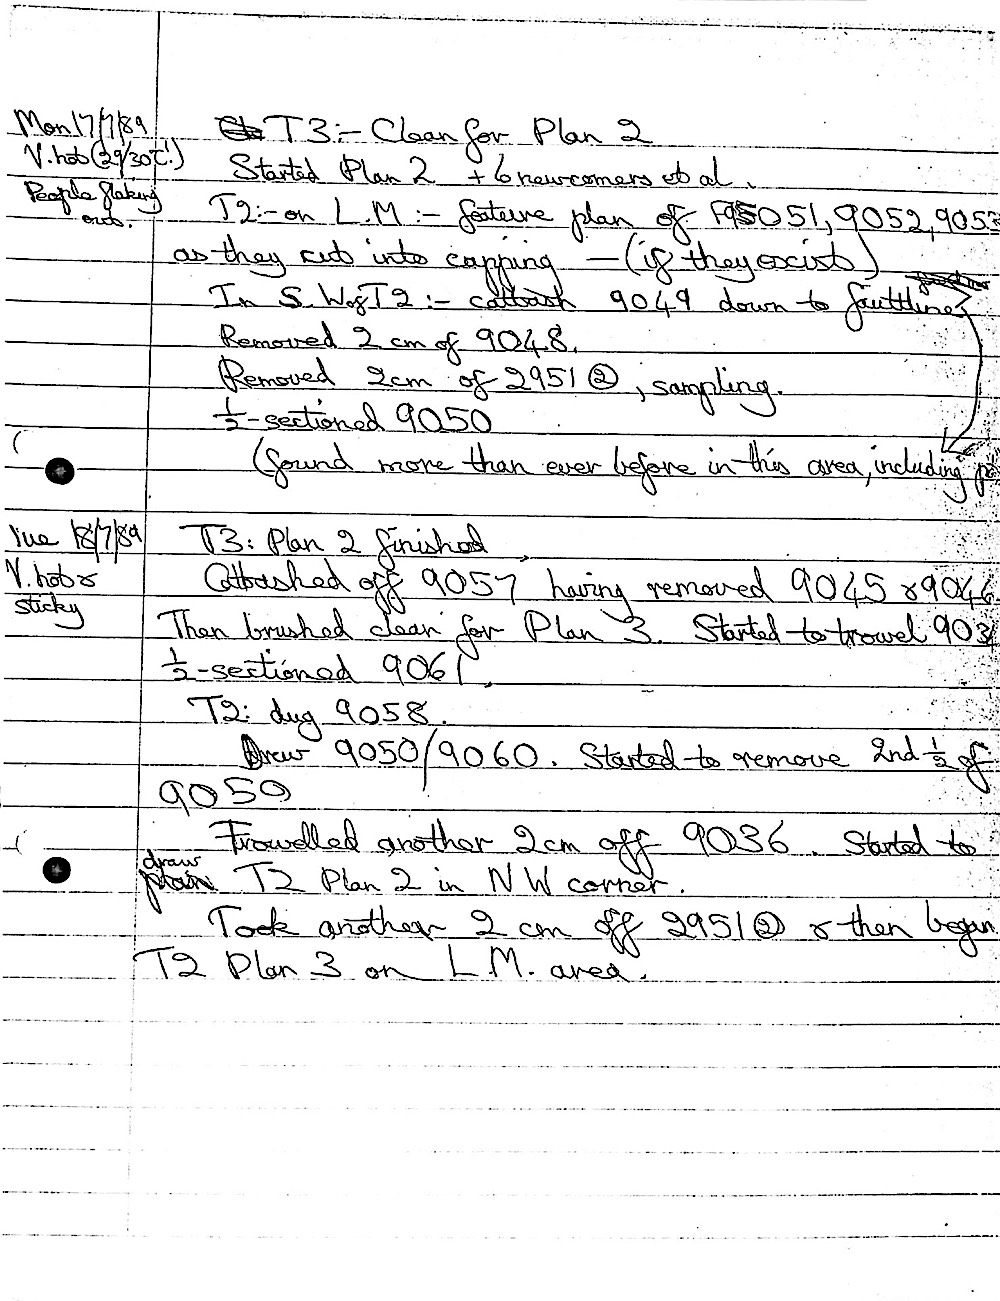 Mon 17/7/89
V. hot (29/30°C!)
People flaking
out.
T3:- Clean for Plan 2
Started Plan 2 + 6 newcomers et al.
T2:- on L.M :- feature plan of F95051, 9052, 9053
as they cut into capping — (if they exist)
In S.W of T2 :- cattbash 9049 down to faultline
Removed 2 cm of 9048.
Removed 2cm of 2951 ②, sampling.
½-sectioned 9050
(found more than ever before in this area, including
Tue 18/7/89
V. hot &
sticky
T3: Plan 2 finished
Cattbashed off 9057 having removed 9045 & 9046.
Then brushed clean for Plan 3. Started to trowel
½-sectioned 9061.
T2: dug 9058.
Drew 9050/9060. Started to remove 2nd ½ of
9050
Trowelled another 2cm off 9036. Started to
draw
plan T2 Plan 2 in NW corner.
Took another 2 cm off 2951 ② & then began
T2 Plan 3 on L.M. area.